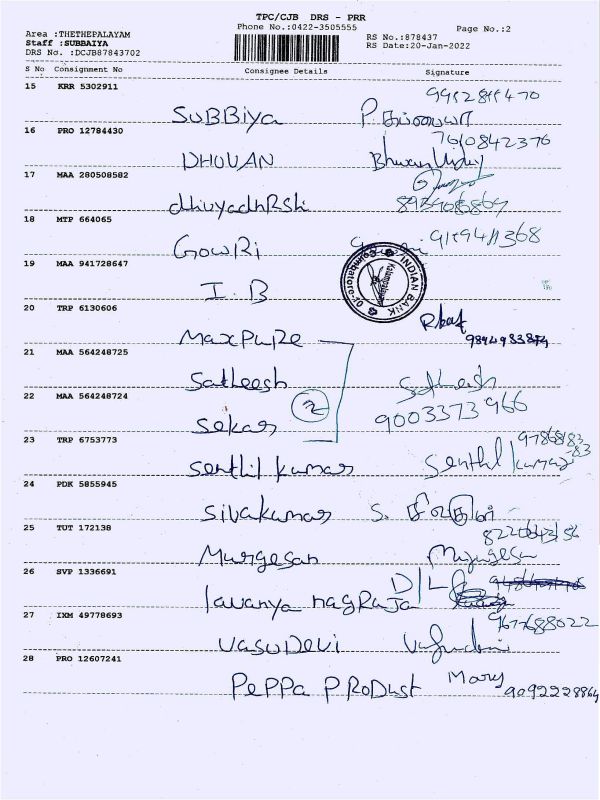 TPC/CJB DRS - PRR
Phone No.:0422-3505555
Page No.:2
Area :THETHEPALAYAM
Staff :SUBBAIYA
DRS No. :DCJB87843702
RS No.:878437
RS Date:20-Jan-2022
S No Consignment No Consignee Details Signature
15 KRR 5302911
SUBBiya
16 PRO 12784430 7610842376
DHUVAN
17 MAA 280508582
dhivyadhRShi
18 MTP 664065
GowRi
19 MAA 941728647
I.B
INDIAN BANK
20 TRP 6130606
Maxpure 9894983874
21 MAA 564248725
Satheesh Sathesh
22 MAA 564248724 9003373966
Sekar 2
23 TRP 6753773
Senthil kumar Senthil kumar
24 PDK 5855945
Sivakumar S. சிவகுமார்
25 TUT 172138
Murgesan Murugesan
26 SVP 1336691 D/L
lavanya nagRaja
27 IXM 49778693 9677688022
VasuDevi Vasudevi
28 PRO 12607241
PePPa PRoDust Mary 9092228864